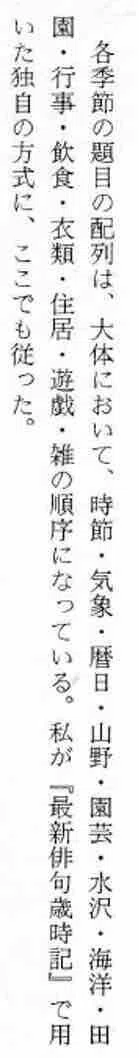 各季節の題目の配列は、大体において、時節・気象・暦日・山野・園芸・水沢・海洋・田
園・行事・飲食・衣類・住居・遊戯・雑の順序になっている。私が『最新俳句歳時記』で用
いた独自の方式に、ここでも従った。